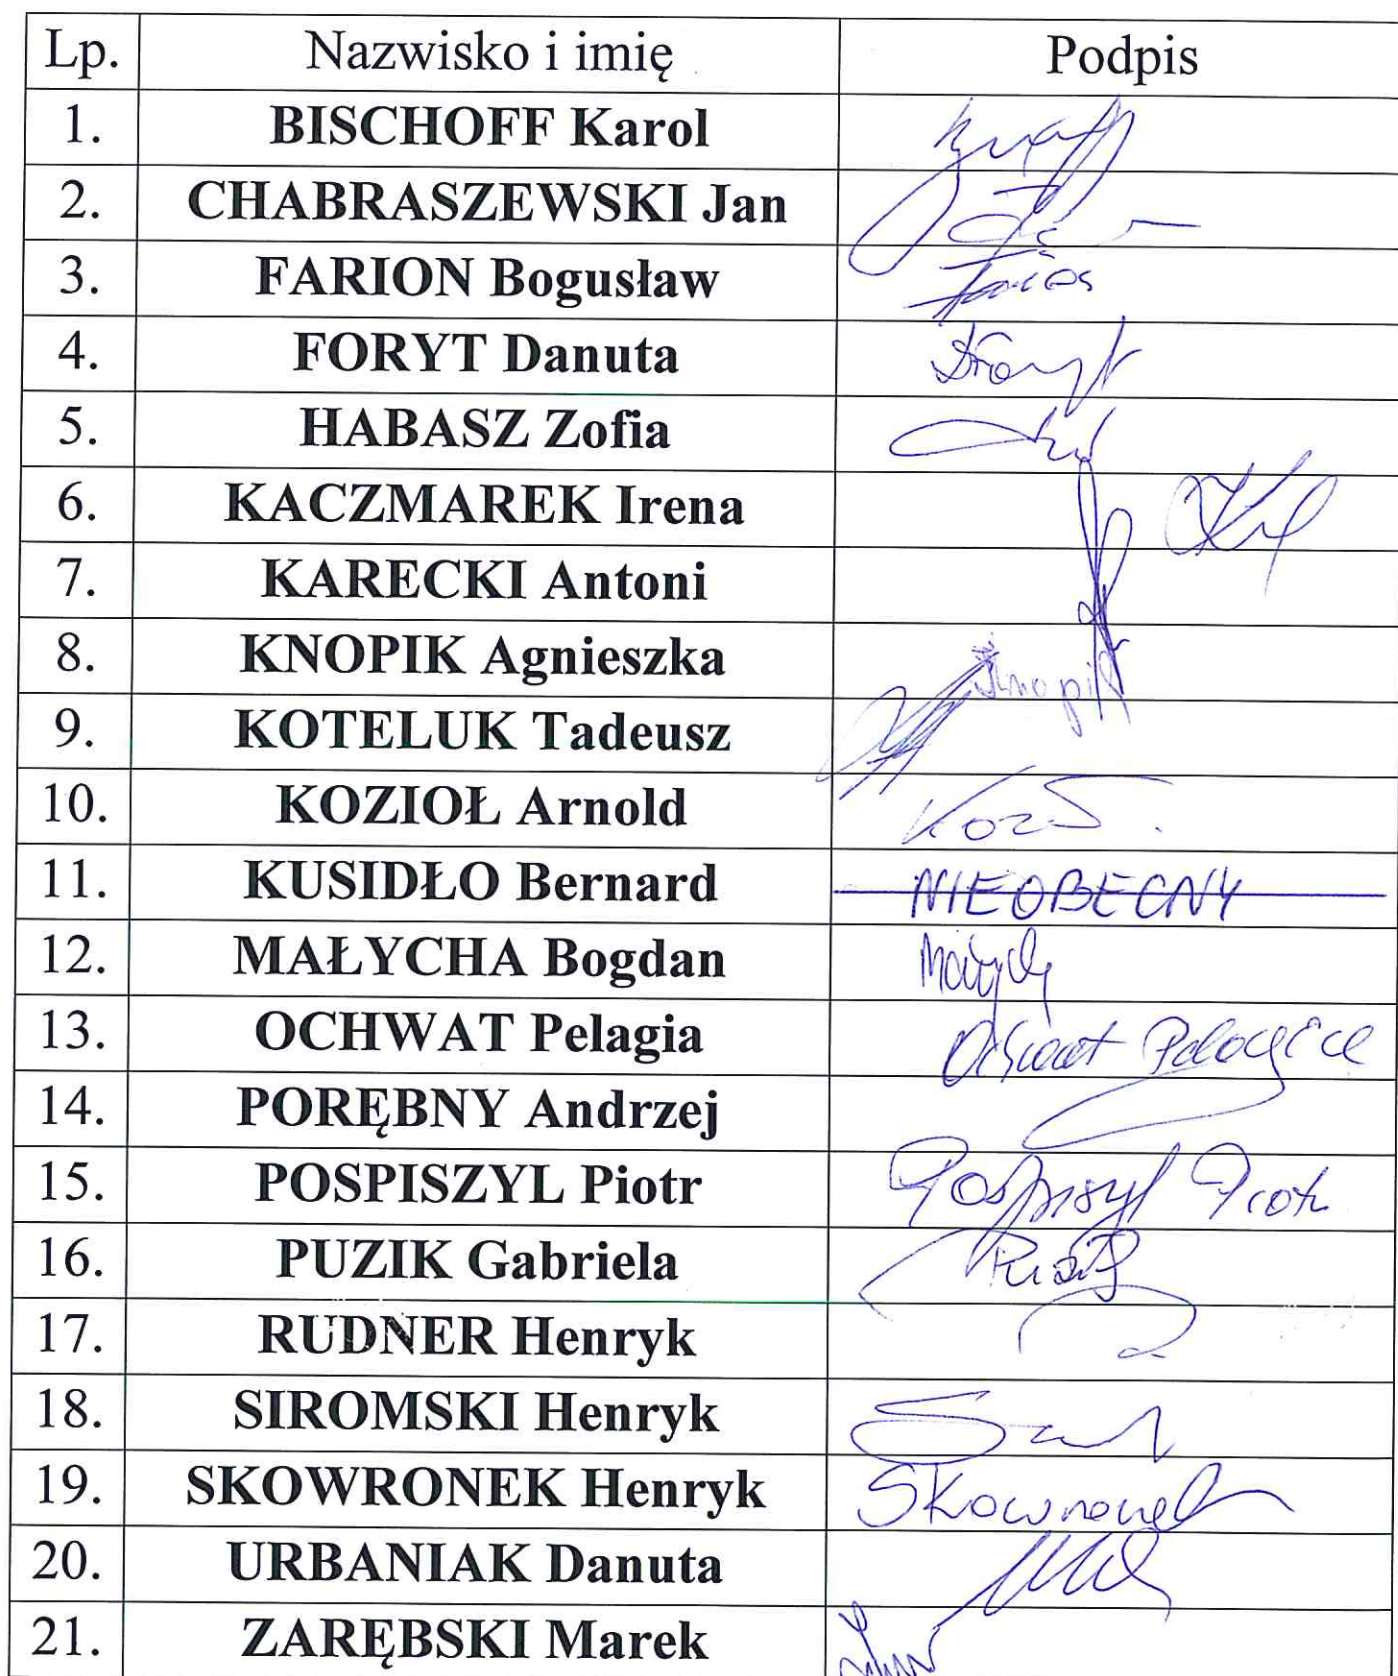 Lp. Nazwisko i imię Podpis
1. BISCHOFF Karol
2. CHABRASZEWSKI Jan
3. FARION Bogusław
4. FORYT Danuta
5. HABASZ Zofia
6. KACZMAREK Irena
7. KARECKI Antoni
8. KNOPIK Agnieszka Knopik
9. KOTELUK Tadeusz
10. KOZIOŁ Arnold
11. KUSIDŁO Bernard NIEOBECNY
12. MAŁYCHA Bogdan
13. OCHWAT Pelagia Ochwat Pelagia
14. PORĘBNY Andrzej
15. POSPISZYL Piotr Pospiszyl Piotr
16. PUZIK Gabriela
17. RUDNER Henryk
18. SIROMSKI Henryk
19. SKOWRONEK Henryk Skowronek
20. URBANIAK Danuta
21. ZARĘBSKI Marek